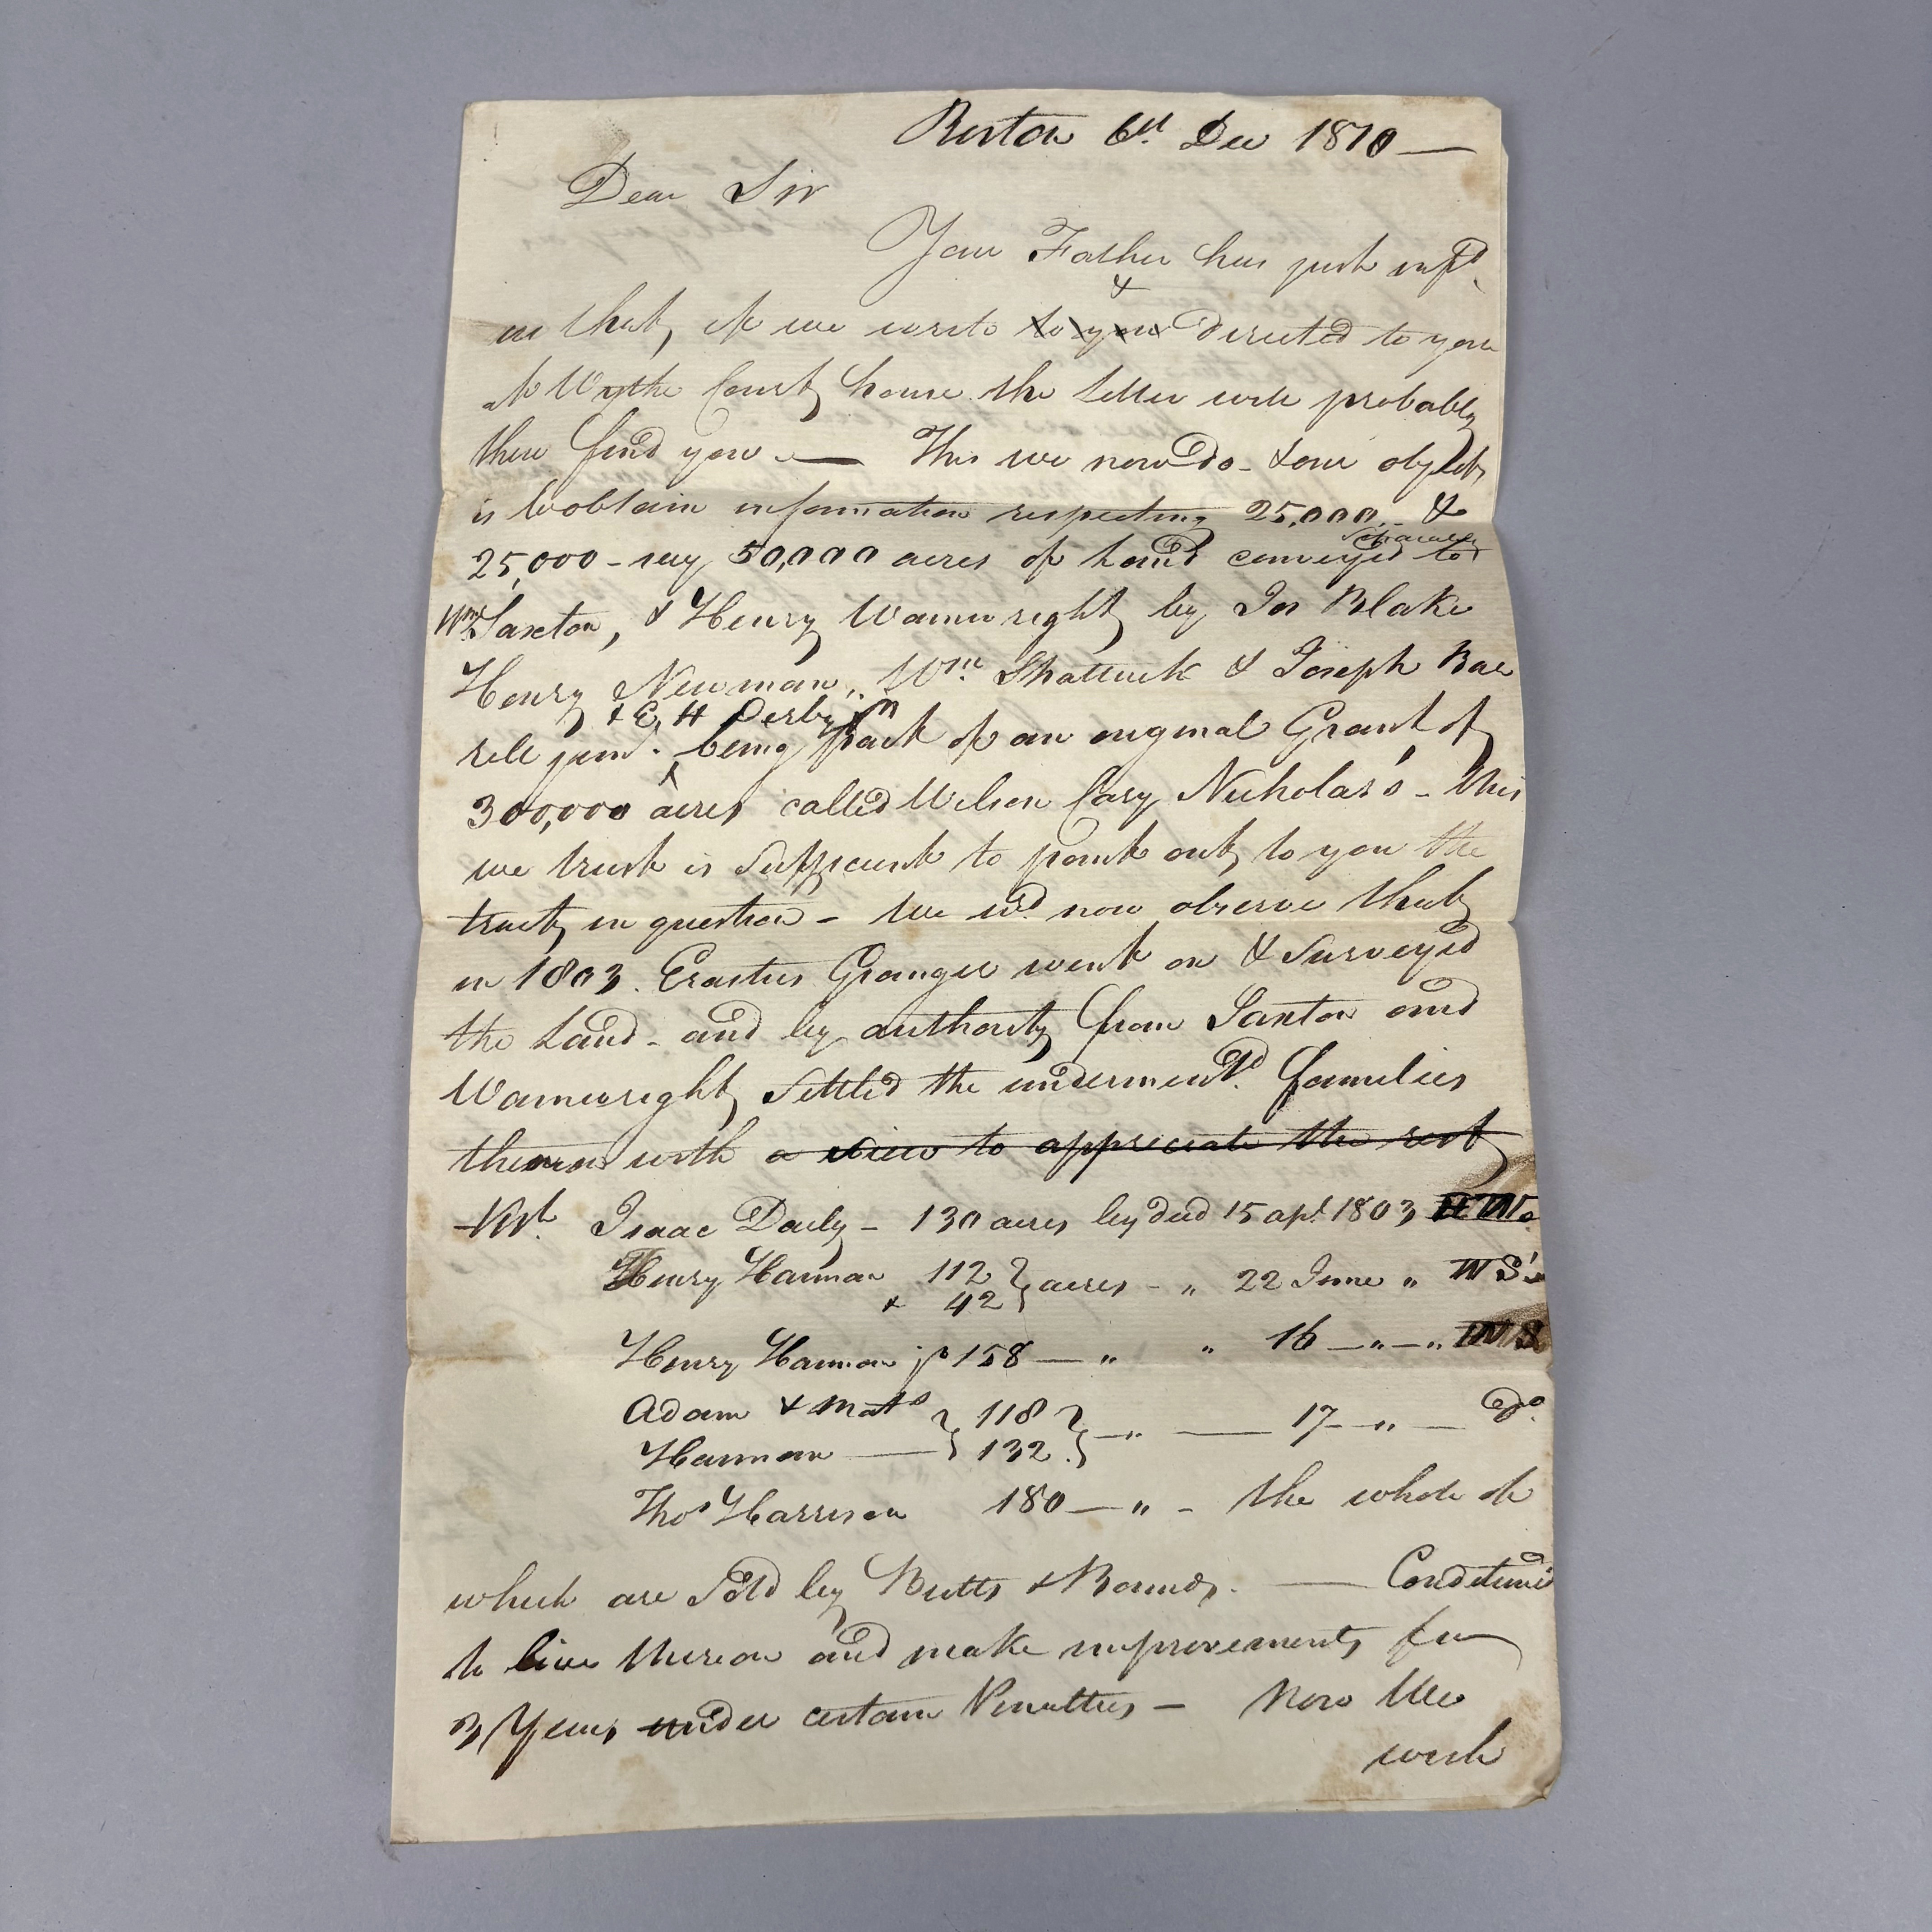 Boston 6th Dec 1810 —
Dear Sir
Your Father has just infd.
us that, if we write to you & directed to you
at Wythe Court house the letter will probably
there find you — This we now do - & our object
is to obtain information respecting 25,000 - &
25,000 - say 50,000 acres of Land conveyed to
Wm. Saxton, & Henry Wainwright by Jos Blake
Henry Newman, Wm. Shattuck & Joseph Bar
rell junr. & E. H Derby being part of an original Grant of
300,000 acres called Wilson Cary Nicholas's - this
we trust is sufficient to point out to you the
tract in question - We wd. now observe that
in 1803. Erastus Granger went on & Surveyed
the Land - and by authority from Saxton and
Wainwright settled the undermentd. families
thereon with a view to appreciate the rest
Vizt. Isaac Daily - 130 acres by deed 15 apl. 1803 H W.
Henry Harman 112 } acres - " 22 June " W S's
& 42
Henry Harman jr 158 — " " 16 — " — " W S
Adam & Mats } 118 } — " — 17 — " — Do.
Harman — 132.
Thos Harrison 180 — " - the whole of
which are Sold by Butts & Bounds. — Conditioned
to live thereon and make improvements for
3 Years under certain Penalties — Now We
wish